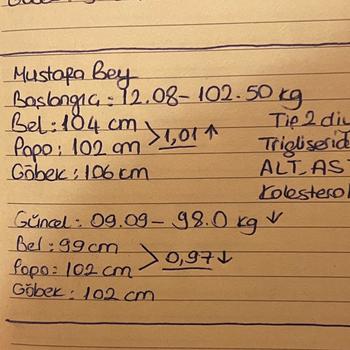 Mustafa Bey
Başlangıç : 12.08 - 102.50 kg
Bel : 104 cm > 1,01 ↑ Tip 2 diy
Popo : 102 cm Trigliserid
Göbek : 106 cm ALT, AS
Kolesterol
Güncel : 09.09 - 98.0 kg ↓
Bel : 99 cm > 0,97 ↓
Popo : 102 cm
Göbek : 102 cm